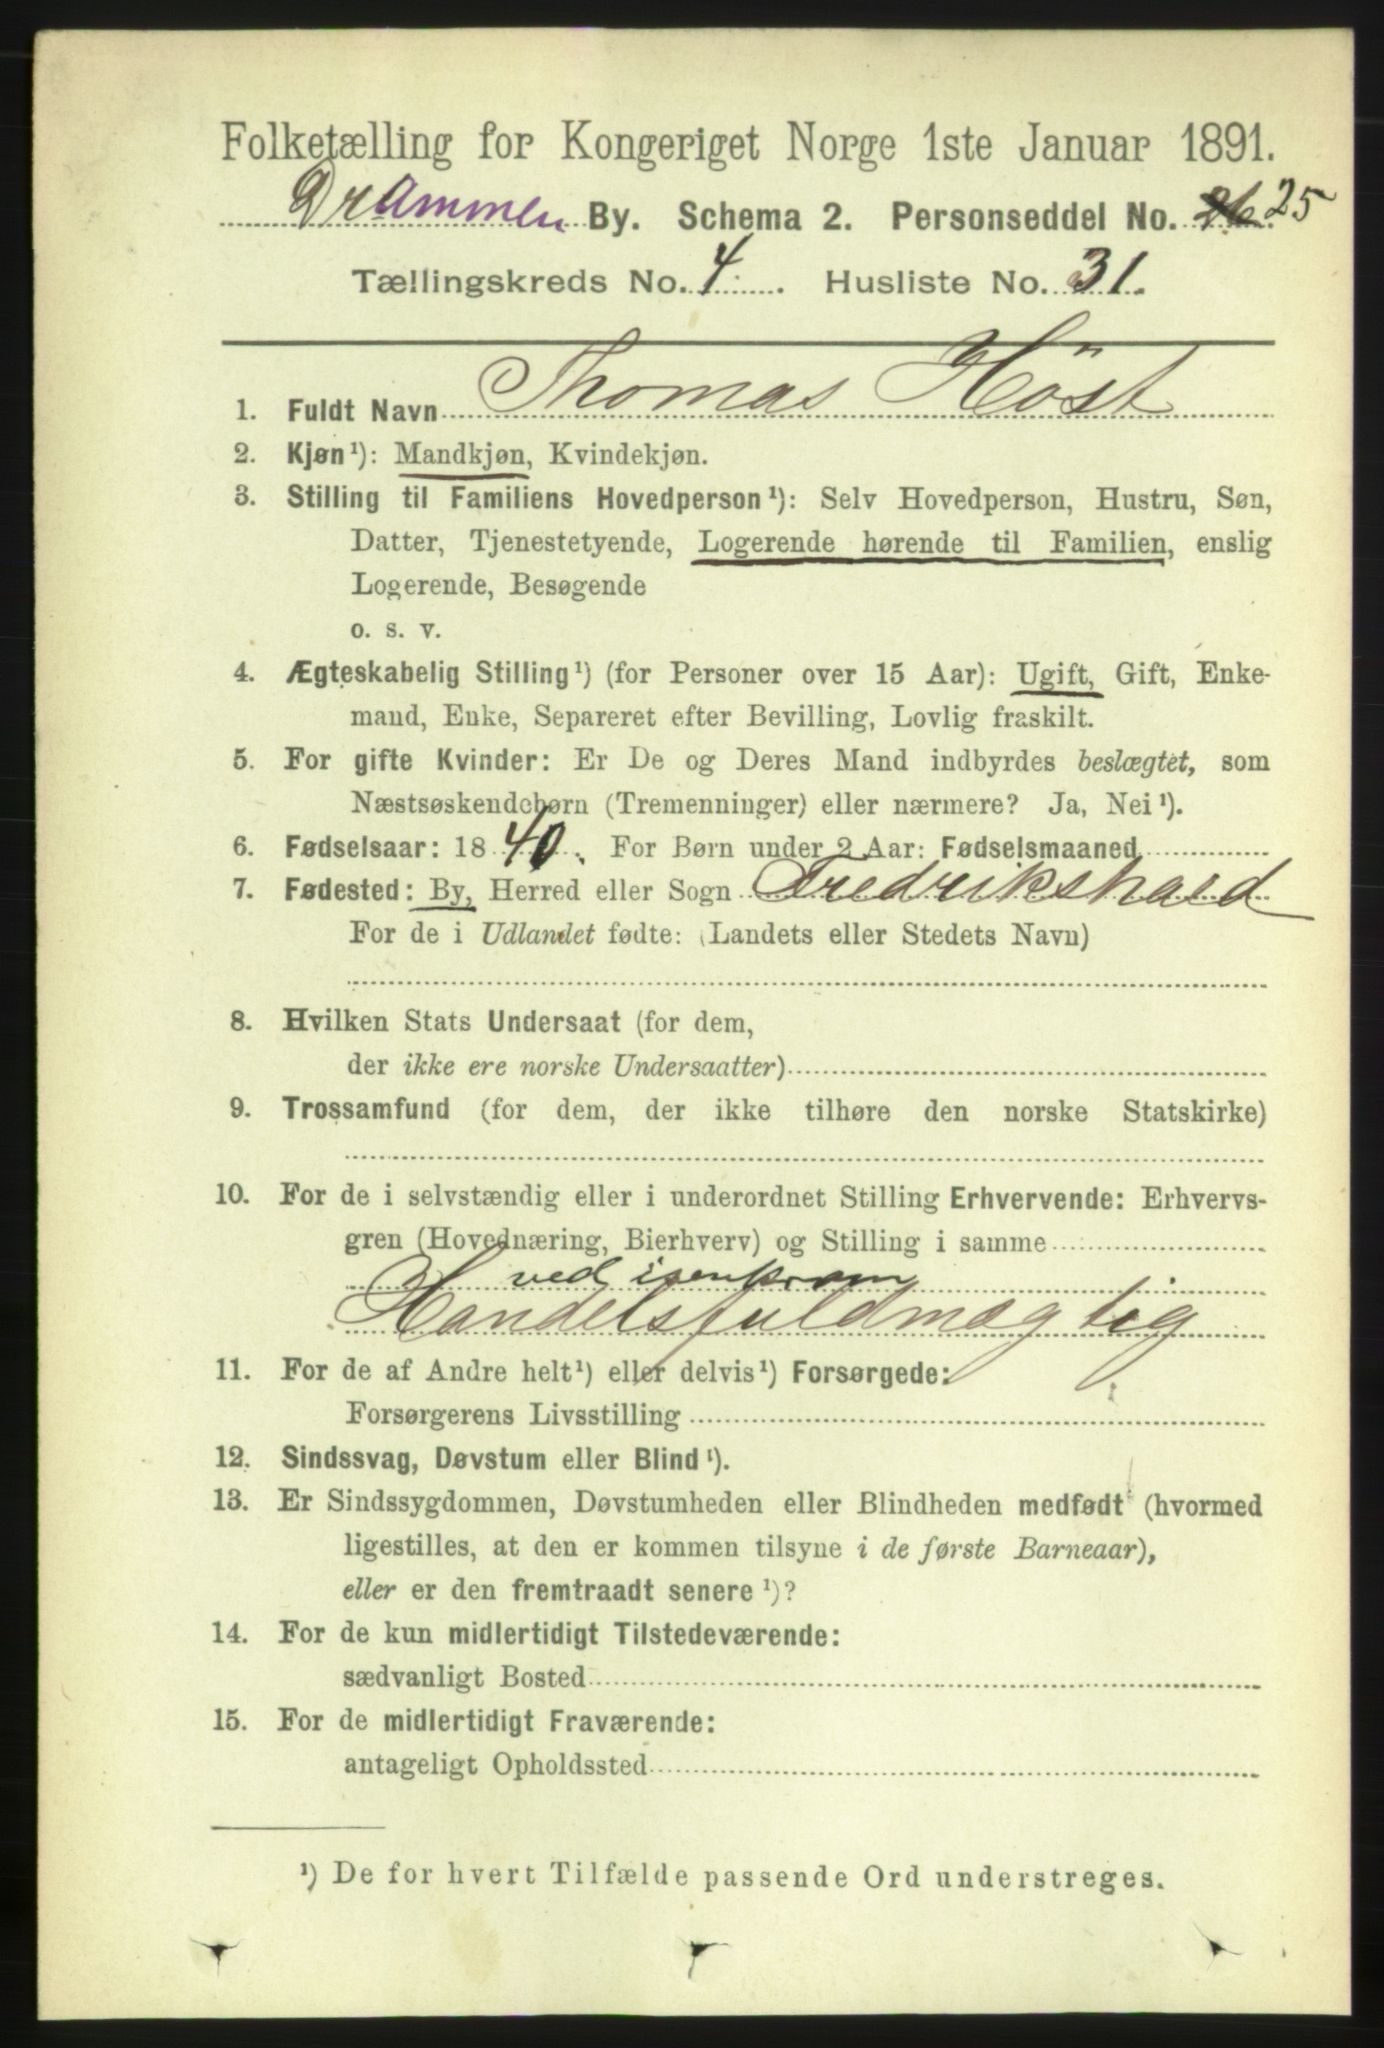 Folketælling for Kongeriget Norge 1ste Januar 1891.
Drammen By. Schema 2. Personseddel No. 26 25
Tællingskreds No. 4. Husliste No. 31.
1. Fuldt Navn Thomas Höst
2. Kjøn¹): Mandkjøn, Kvindekjøn.
3. Stilling til Familiens Hovedperson¹): Selv Hovedperson, Hustru, Søn,
Datter, Tjenestetyende, Logerende hørende til Familien, enslig
Logerende, Besøgende
o. s. v.
4. Ægteskabelig Stilling¹) (for Personer over 15 Aar): Ugift, Gift, Enke-
mand, Enke, Separeret efter Bevilling, Lovlig fraskilt.
5. For gifte Kvinder: Er De og Deres Mand indbyrdes beslægtet, som
Næstsøskendebørn (Tremenninger) eller nærmere? Ja, Nei¹).
6. Fødselsaar: 1840. For Børn under 2 Aar: Fødselsmaaned
7. Fødested: By, Herred eller Sogn Fredrikshald
For de i Udlandet fødte: (Landets eller Stedets Navn)
8. Hvilken Stats Undersaat (for dem,
der ikke ere norske Undersaatter)
9. Trossamfund (for dem, der ikke tilhøre den norske Statskirke)
10. For de i selvstændig eller i underordnet Stilling Erhvervende: Erhvervs-
gren (Hovednæring, Bierhverv) og Stilling i samme
ved isenkram
Handelsfuldmægtig
11. For de af Andre helt¹) eller delvis¹) Forsørgede:
Forsørgerens Livsstilling
12. Sindssvag, Døvstum eller Blind¹).
13. Er Sindssygdommen, Døvstumheden eller Blindheden medfødt (hvormed
ligestilles, at den er kommen tilsyne i de første Barneaar),
eller er den fremtraadt senere¹)?
14. For de kun midlertidigt Tilstedeværende:
sædvanligt Bosted
15. For de midlertidigt Fraværende:
antageligt Opholdssted
¹) De for hvert Tilfælde passende Ord understreges.